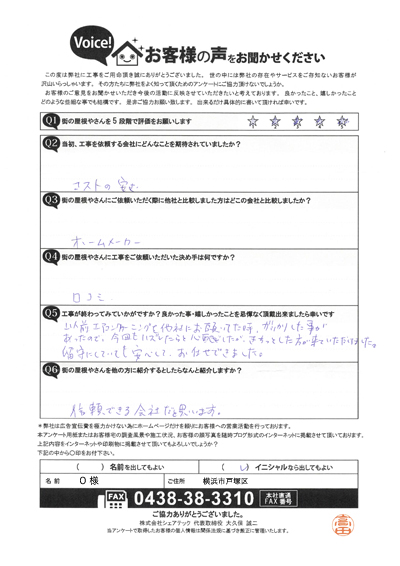 Voice!
お客様の声をお聞かせください
この度は弊社に工事をご用命頂き誠にありがとうございました。世の中には弊社の存在やサービスをご存知ないお客様が
沢山いらっしゃいます。その方たちに弊社をよく知って頂くためのアンケートにご協力下さいないでしょうか。
お客様のご意見をお聞かせいただき今後の活動に反映させていただきたいと考えております。良かったこと、嬉しかったこと
どのような些細な事でも結構です。是非ご協力お願い致します。出来るだけ具体的に書いて頂ければ幸いです。
Q1 街の屋根やさんを5段階で評価をお願いします ☆ ☆ ☆ ☆ ☆
Q2 当初、工事を依頼する会社にどんなことを期待されていましたか?
コストの安さ
Q3 街の屋根やさんにご依頼いただく際に他社と比較しました方はどこの会社と比較しましたか?
ホームメーカー
Q4 街の屋根やさんに工事をご依頼いただいた決め手は何ですか?
口コミ
Q5 工事が終わってみていかがですか?良かった事・嬉しかったことを忌憚なく頂戴出来ましたら幸いです
以前エアコンクリーニングを他社にお願いした時、がっかりした事が
あったので、今回も だったらと心配でしたが、きちっとした方が来ていただけました。
留守にしていても安心して、お任せできました。
Q6 街の屋根やさんを他の方に紹介するとしたらなんと紹介しますか?
信頼できる会社だと思います。
*弊社は広告宣伝費を極力かけない為にホームページだけを頼りにお客様への営業活動を行っております。
本アンケート用紙またはお客様宅の調査風景や施工状況、お客様の顔写真を随時ブログ形式のインターネットに掲載させて頂いております。
上記内容をインターネットや印刷物に掲載させて頂いてもよろしいでしょうか?
下記の中から○印をお付下さい。
( )名前を出してもよい ( )イニシャルなら出してもよい
名前 O様 ご住所 横浜市戸塚区
FAX 0438-38-3310 本社直通FAX番号
ご協力ありがとうございました。
株式会社シェアテック 代表取締役 大久保 誠二
当アンケートで取得したお客様の個人情報は関係法規に基づき厳正に管理いたします。